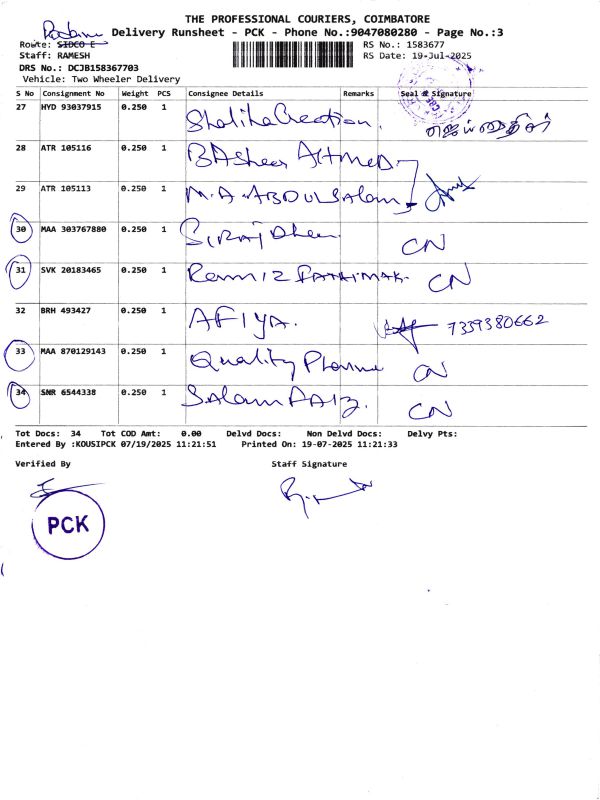 THE PROFESSIONAL COURIERS, COIMBATORE
Delivery Runsheet - PCK - Phone No.:9047080280 - Page No.:3
Route: SIDCO E
RS No.: 1583677
Staff: RAMESH
RS Date: 19-Jul-2025
DRS No.: DCJB158367703
Vehicle: Two Wheeler Delivery
S No Consignment No Weight PCS Consignee Details Remarks Seal & Signature
27 HYD 93037915 0.250 1 Shalika Creation.
28 ATR 105116 0.250 1 BAsheer AHmed
29 ATR 105113 0.250 1 M.A. ABDUL Salam
30 MAA 303767880 0.250 1 SIRAJDheen. CN
31 SVK 20183465 0.250 1 Ramiz FATHIMAK. CN
32 BRH 493427 0.250 1 AFIYA. 7339380662
33 MAA 870129143 0.250 1 Quality Pharma CN
34 SNR 6544338 0.250 1 Salam FAIZ. CN
Tot Docs: 34 Tot COD Amt: 0.00 Delvd Docs: Non Delvd Docs: Delvy Pts:
Entered By :KOUSIPCK 07/19/2025 11:21:51 Printed On: 19-07-2025 11:21:33
Verified By Staff Signature
PCK